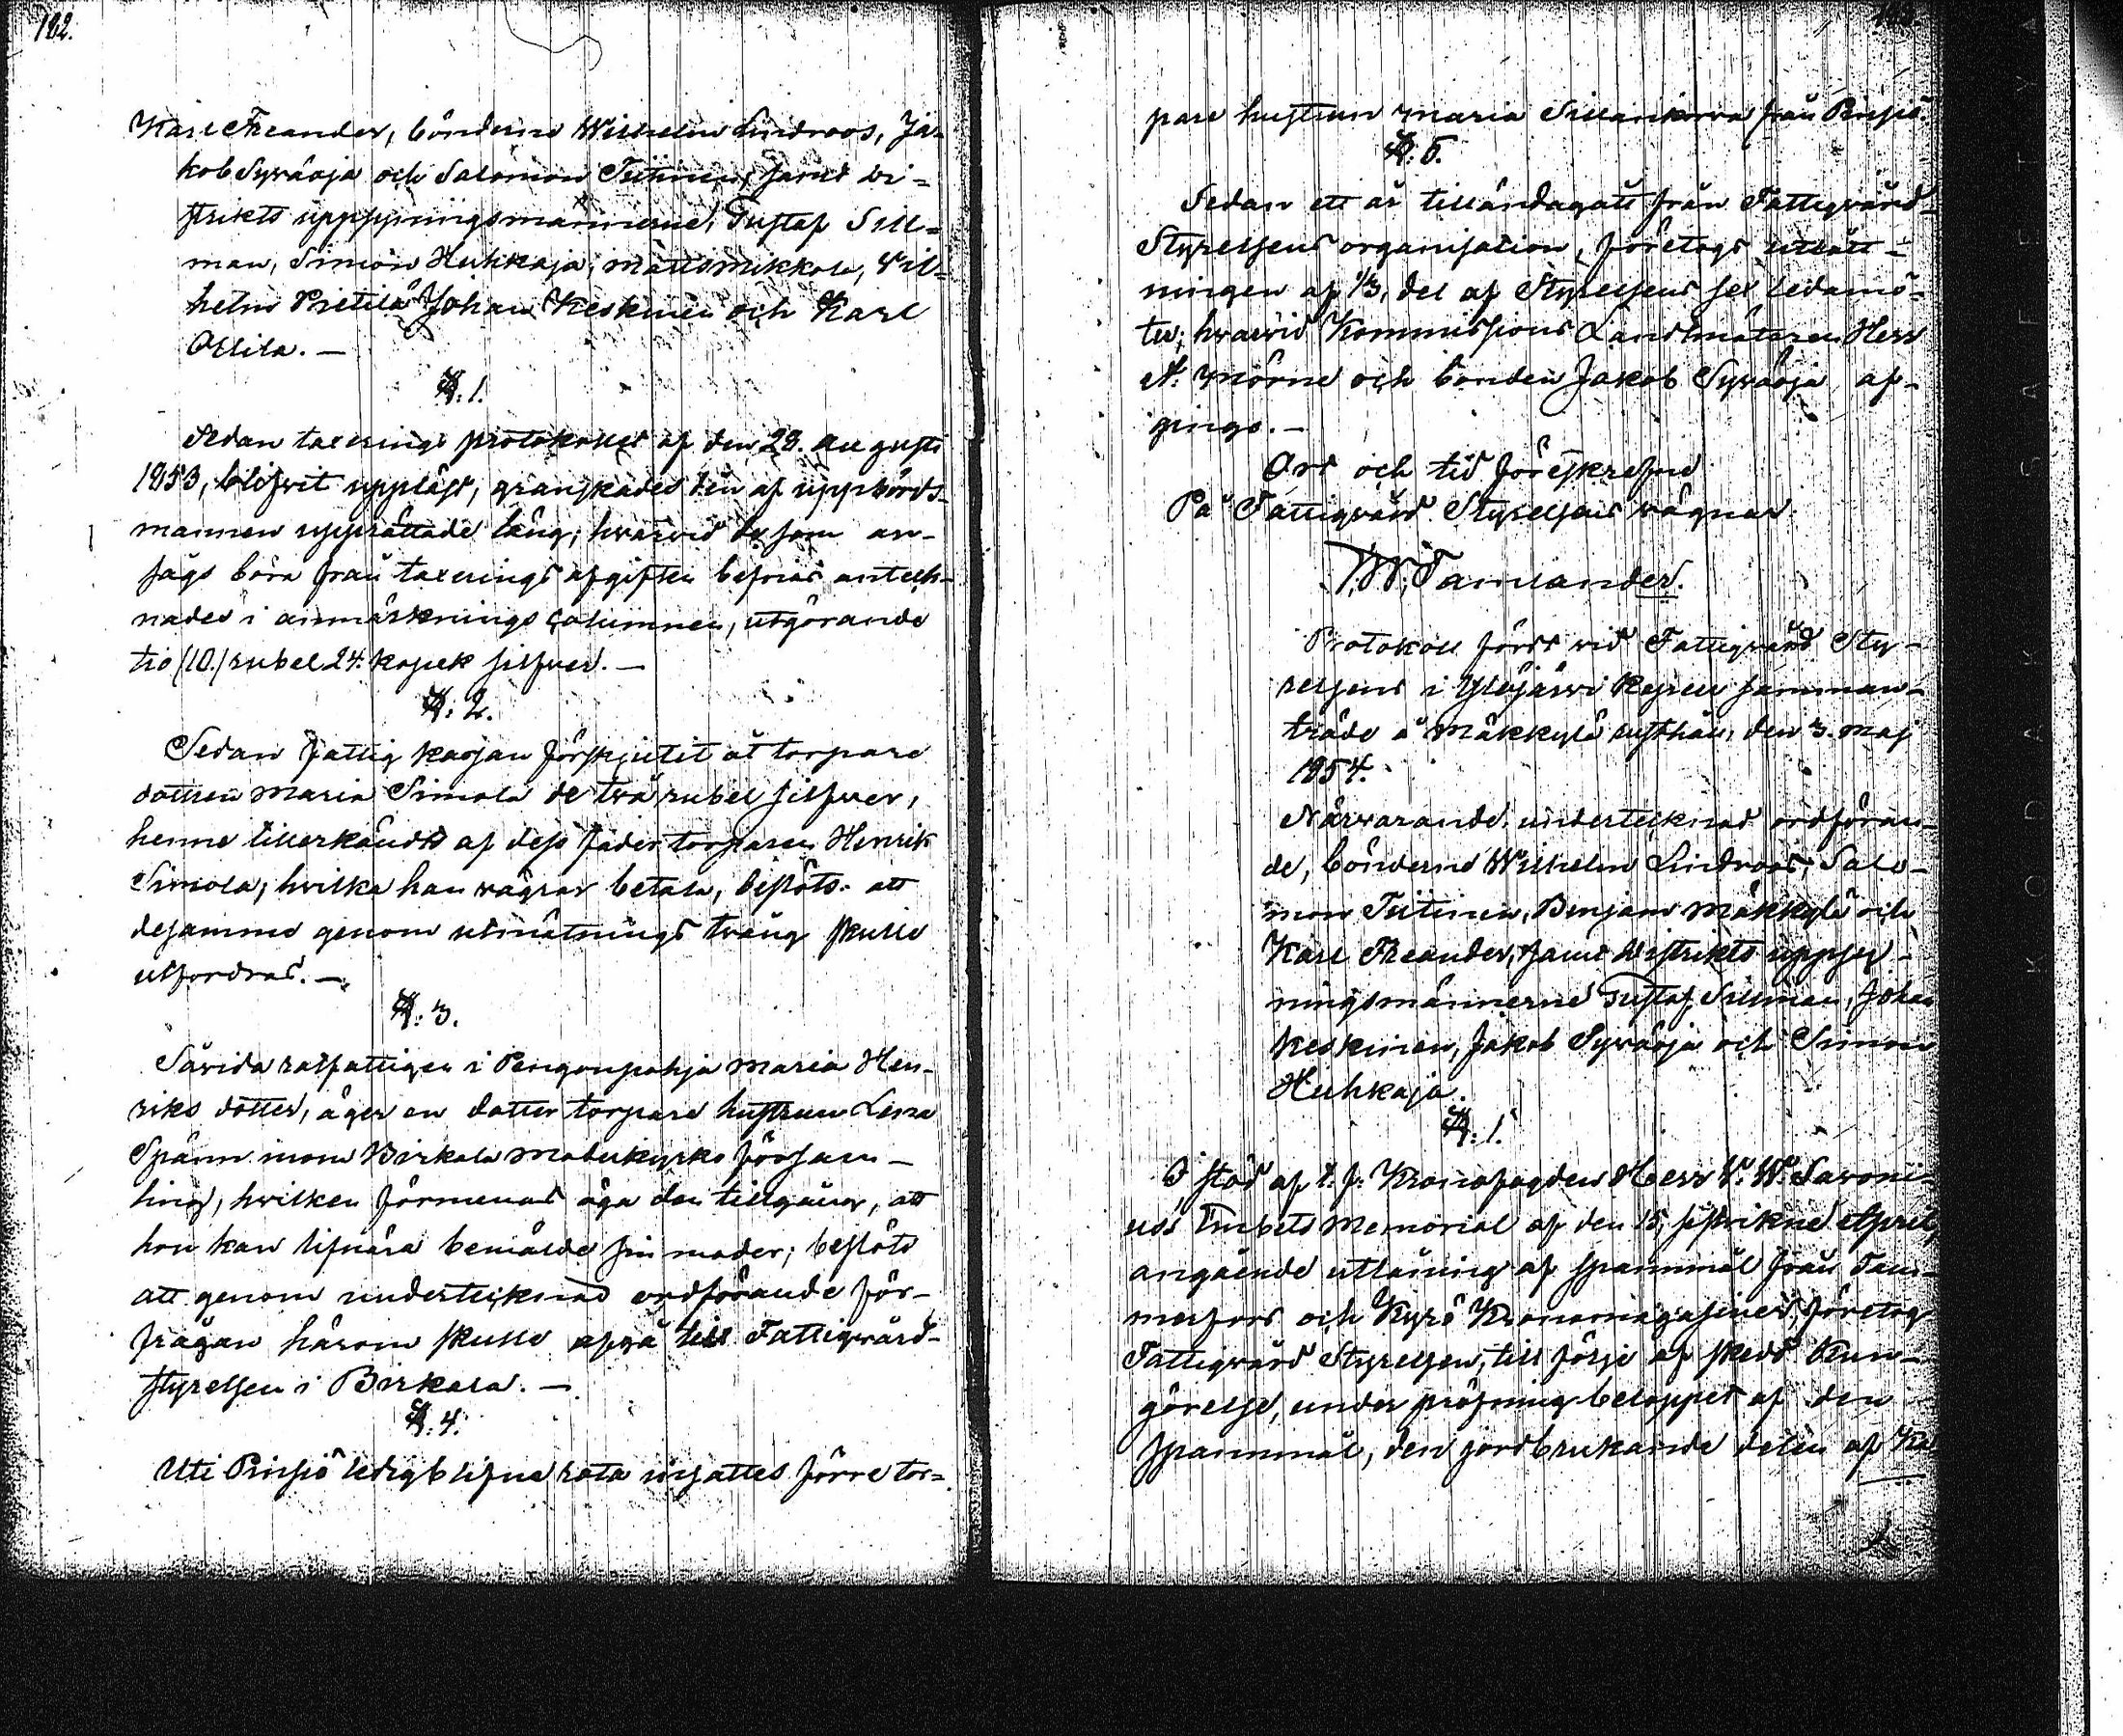 182.
Karl Theander, bönderne Wilhelm Lindroos, Ja-
kob Syväoja och Salomon Tiitinen, samt di-
strikts uppsyningsmännerne, Gustaf Sill-
man, Simon Huhkaja, Matts Mikkola, Wil-
helm Pietilä Johan Keskinen och Karl
Ollila. —
§. 1.
Sedan taxerings protokollet af den 23. Augusti
1853, blifvit uppläst, granskades den af uppbörds-
mannen upprättade läng, hvarvid de som an-
sågs böra från taxerings afgiften befrias anteck-
nades i anmärknings columnen, utgörande
tio (10.) rubel 24. kopek silfver. —
§. 2.
Sedan fattig kassan förskjutit åt torpare
dottren Maria Simola de två rubel silfver,
henne tillerkändts af dess fader torparen Henrik
Simola, hvilka han vägrar betala, beslöts att
desamma genom utmätnings tvång skulle
utfordras. —
§. 3.
Såvida rotfattigen i Pengonpohja Maria Hen-
riks dotter, äger en dotter torpare hustrun Lena
Spänn inom Birkala moderkyrko försam-
ling, hvilken förmenas äga den tillgång, att
hon kan lifnära bemälde sin moder; beslöts
att genom undertecknad ordförande för-
frågan härom skulle afgå till Fattigvård-
styrelsen i Birkala. —
§. 4.
Uti Pinsiö ledigblifna rota insattes förre tor-
pare hustrun Maria Sillankorva från Pinsiö.
§. 5.
Sedan ett år tilländagått från Fattigvård-
Styrelsens organisation, företogs utlott-
ningen af 1/3, del af Styrelsens sex ledamö-
ter; hvarvid Kommissions Landtmätaren Herr
A. Mörne och bonden Jakob Syväoja af-
gingo. —
Ort och tid föreskrefne
På Fattigvård Styrelsens vägnar
W. Tamlander.
Protokoll fördt vid Fattigvård Sty-
relsens i Ylöjärvi Kapell samman-
träde å Mäkkylä rusthåll, den 3. Maj
1854.
Närvarande, undertecknad ordföran-
de, bönderne Wilhelm Lindroos, Salo-
mon Tiitinen, Benjam Mäkkylä och
Karl Theander, samt distrikts uppsy-
ningsmännerne Gustaf Sillman, Johan
Keskinen, Jakob Syväoja och Simon
Huhkaja.
§. 1.
I stöd af t. f. Kronofogden Herr V. W. Savoni-
uss Embets Memorial af den 15, sistvikne April,
angående utlåning af spannmål från Tam-
merfors och Kyro Kronomagasiner, företog
Fattigvård Styrelsen, till följe af skedd Kun-
görelse, under pröfning beloppet af den
spannmål, den jordbrukande delen af Ka-